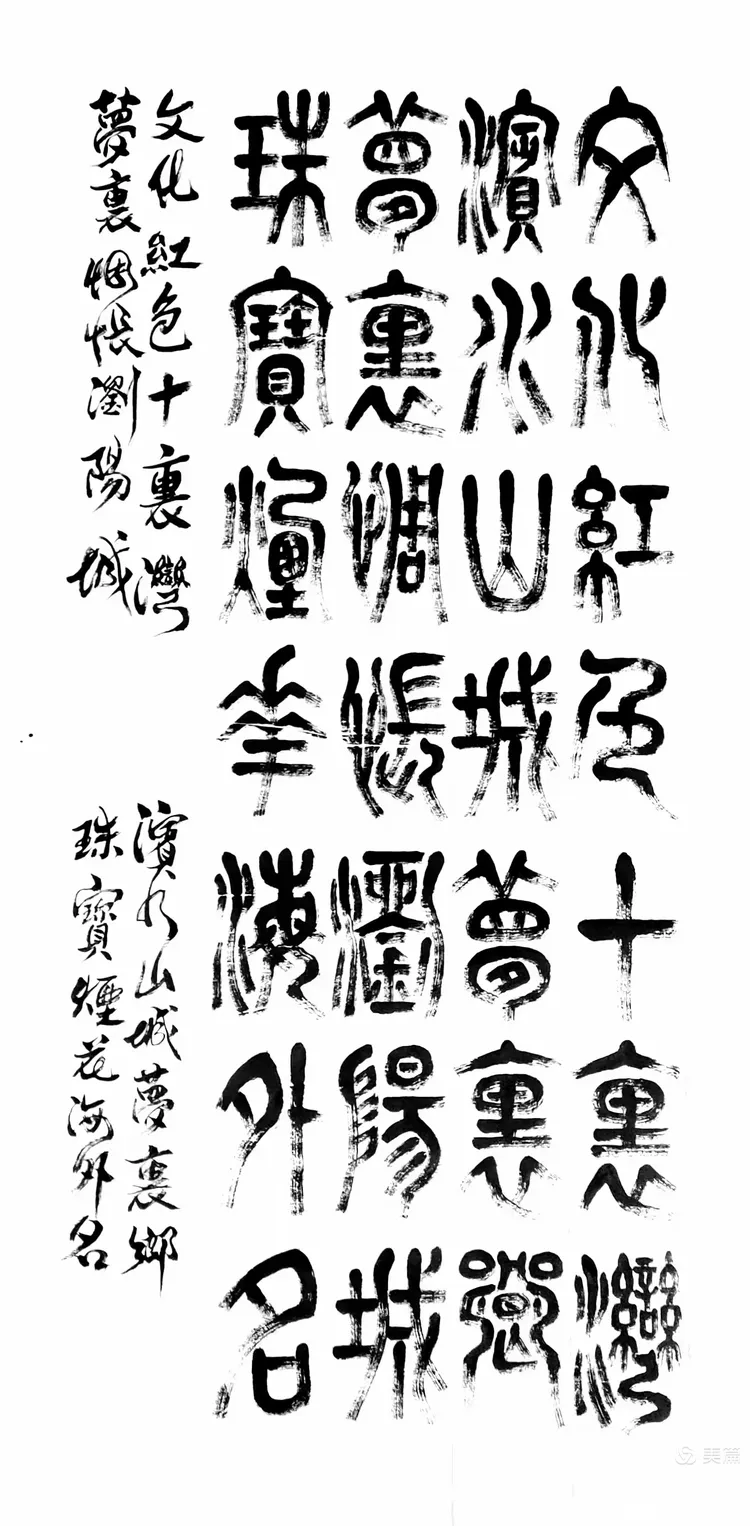 文化紅色十裏灣
濱水山城夢裏鄉
夢裏惆悵瀏陽城
珠寶煙花海外名
文化紅色十裏灣
夢裏惆悵瀏陽城
濱水山城夢裏鄉
珠寶煙花海外名
美篇